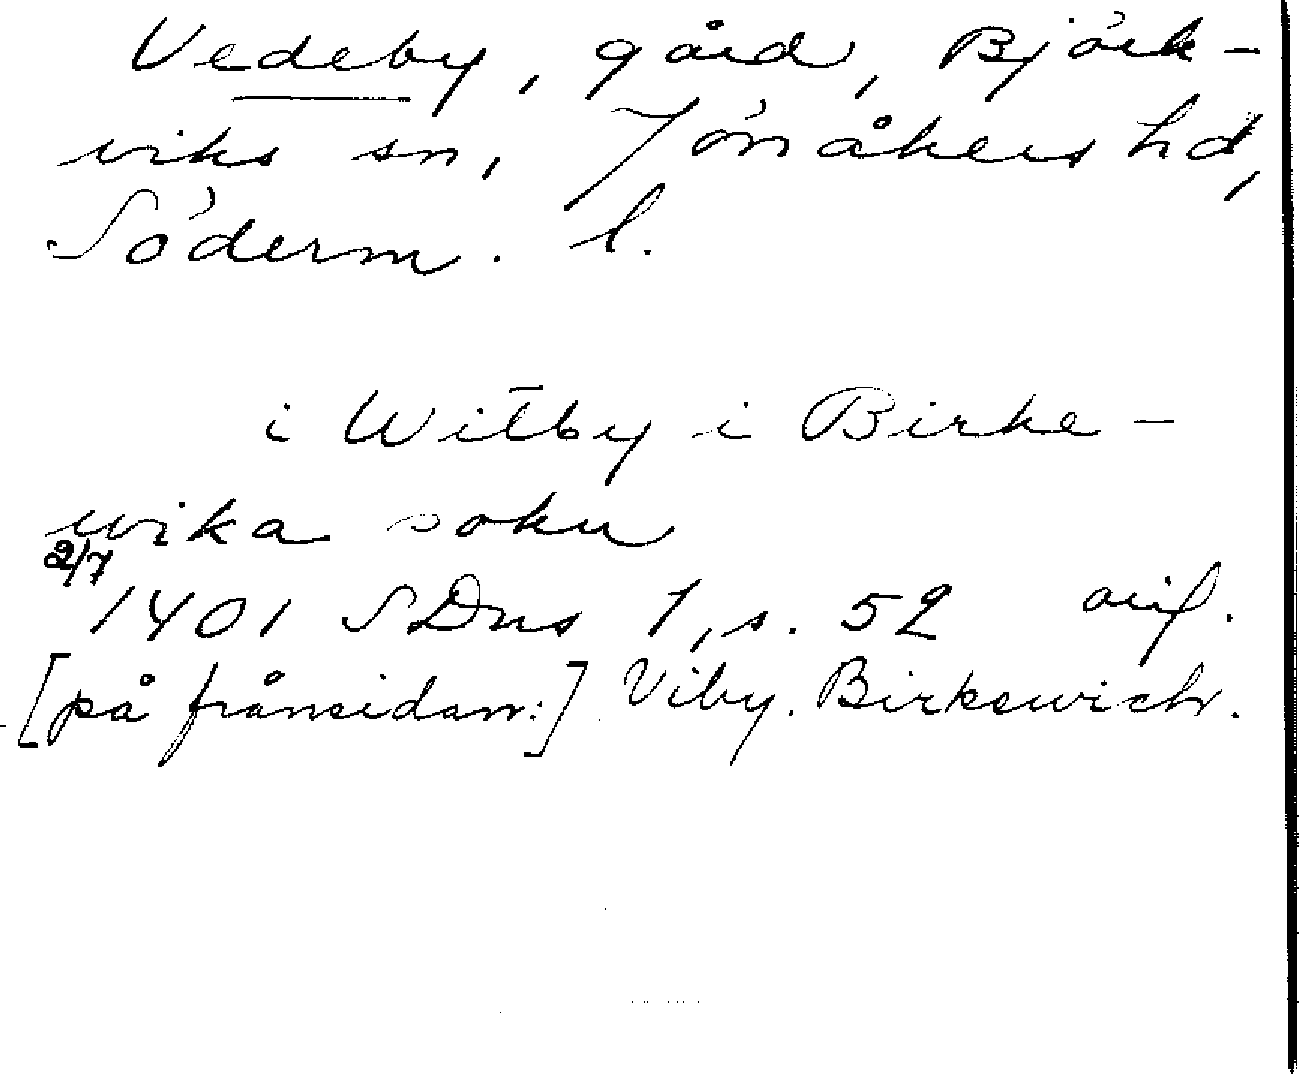 Vedeby, gård, Björk-
viks sn, Jönåkers hd,
Söderm. l.
i Wit̄by i Birke-
wika sokn
2/7
1401 SDns 1, s. 52 orif.
[på frånsidan:] Viby. Birkewich.